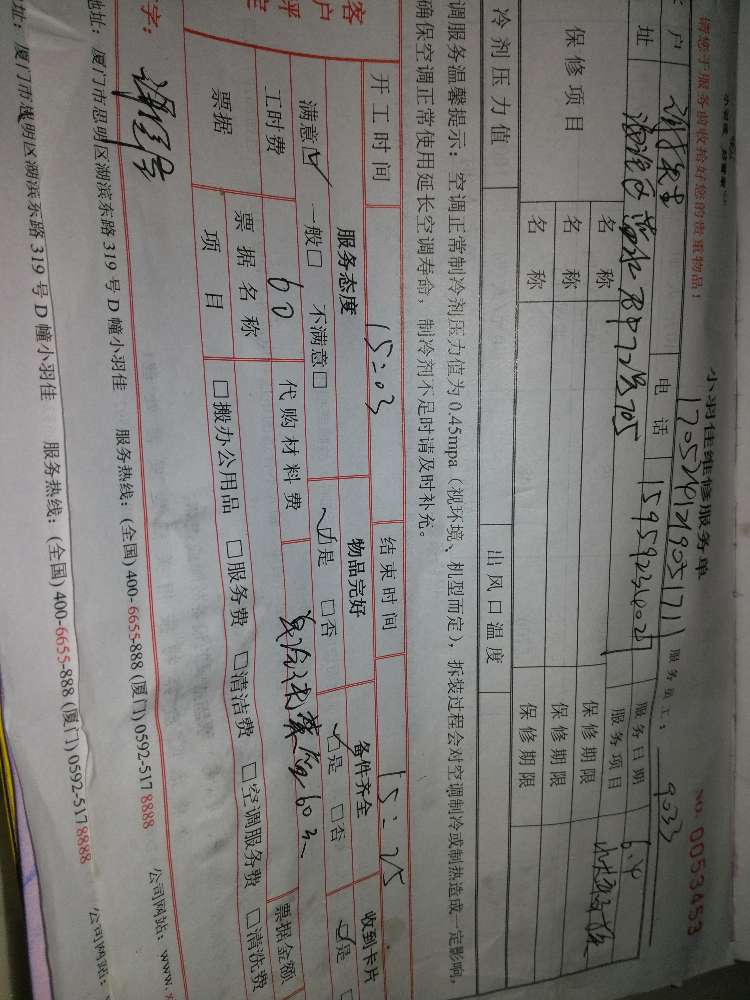 小羽佳维修服务单
NO. 0053453
请您于服务前收拾好您的贵重物品！
服务员工： 9033
户 电话 服务日期 6.4
址 服务项目
保修项目 名称 保修期限
名称 保修期限
名称 保修期限
冷剂压力值 出风口温度
调服务温馨提示：空调正常制冷剂压力值为0.45mpa（视环境、机型而定），拆装过程会对空调制冷或制热造成一定影响，
确保空调正常使用延长空调寿命，制冷剂不足时请及时补充。
开工时间 15:03 结束时间 15:25
客户评定 服务态度 物品完好 备件齐全 收到卡片
满意☑ 一般□ 不满意□ ☑是 □否 ☑是 □否 ☑是
工时费 60 代购材料费
票据 票据名称 票据金额
项目 □搬办公用品 □服务费 □清洁费 □空调服务费 □清洗费
字：
地址：厦门市思明区湖滨东路319号D幢小羽佳 服务热线：(全国) 400-6655-888 (厦门) 0592-5178888 公司网站：www.
址：厦门市思明区湖滨东路319号D幢小羽佳 服务热线：(全国) 400-6655-888 (厦门) 0592-5178888 公司网站：